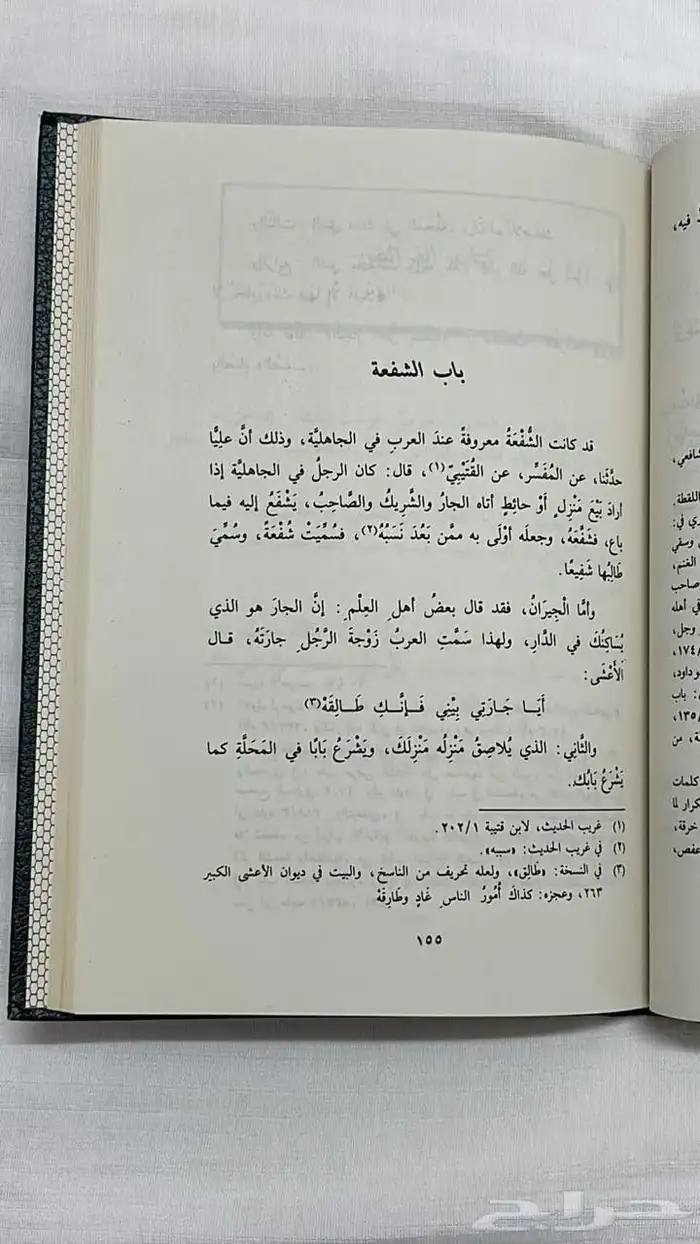 باب الشفعة
قد كانت الشُّفْعَةُ معروفةً عندَ العربِ في الجاهليَّة، وذلك أنَّ علِيًّا
حدَّثنا، عن المُفَسِّر، عن القُتَيْبِيّ(١)، قال: كان الرجلُ في الجاهليَّة إذا
أرادَ بَيْعَ مَنْزِلٍ أَوْ حائِطٍ أتاه الجارُ والشَّرِيكُ والصَّاحِبُ، يَشْفَعُ إليه فيما
باع، فشَفَّعَهُ، وجعلَه أوْلَى به ممَّن بَعُدَ نَسَبُهُ(٢)، فسُمِّيَتْ شُفْعَةً، وسُمِّيَ
طَالِبُها شَفِيعًا.
وأمَّا الْجِيرَانُ، فقد قال بعضُ أهلِ العِلْمِ: إنَّ الجارَ هو الذي
يُسَاكِنُكَ في الدَّارِ، ولهذا سَمَّتِ العربُ زَوْجةَ الرَّجُلِ جارَتَهُ، قال
الأعْشَى:
أَيَا جَارَتِي بِيْنِي فَإِنَّكِ طَالِقَهْ(٣)
والثَّانِي: الذي يُلاصِقُ مَنْزِلُه مَنْزِلَكَ، ويَشْرَعُ بَابًا في المَحَلَّةِ كما
يَشْرَعُ بَابُكَ.
(١) غريب الحديث، لابن قتيبة ٢٠٢/١.
(٢) في غريب الحديث: «سببه».
(٣) في النسخة: «طَالِق»، ولعله تحريف من الناسخ، والبيت في ديوان الأعشى الكبير
٢٦٣، وعجزه: كذاك أُمُورُ الناسِ غَادٍ وطَارِقَهْ
١٥٥
فيه،
شافعي،
اللقطة.
ري في:
وسقي
الغنم،
صاحب
في أهله
وجل،
١٧٤/
وداود،
باب
١٣٥/
من
كلمات
كرار لما
خرقة،
عفص،
حراج